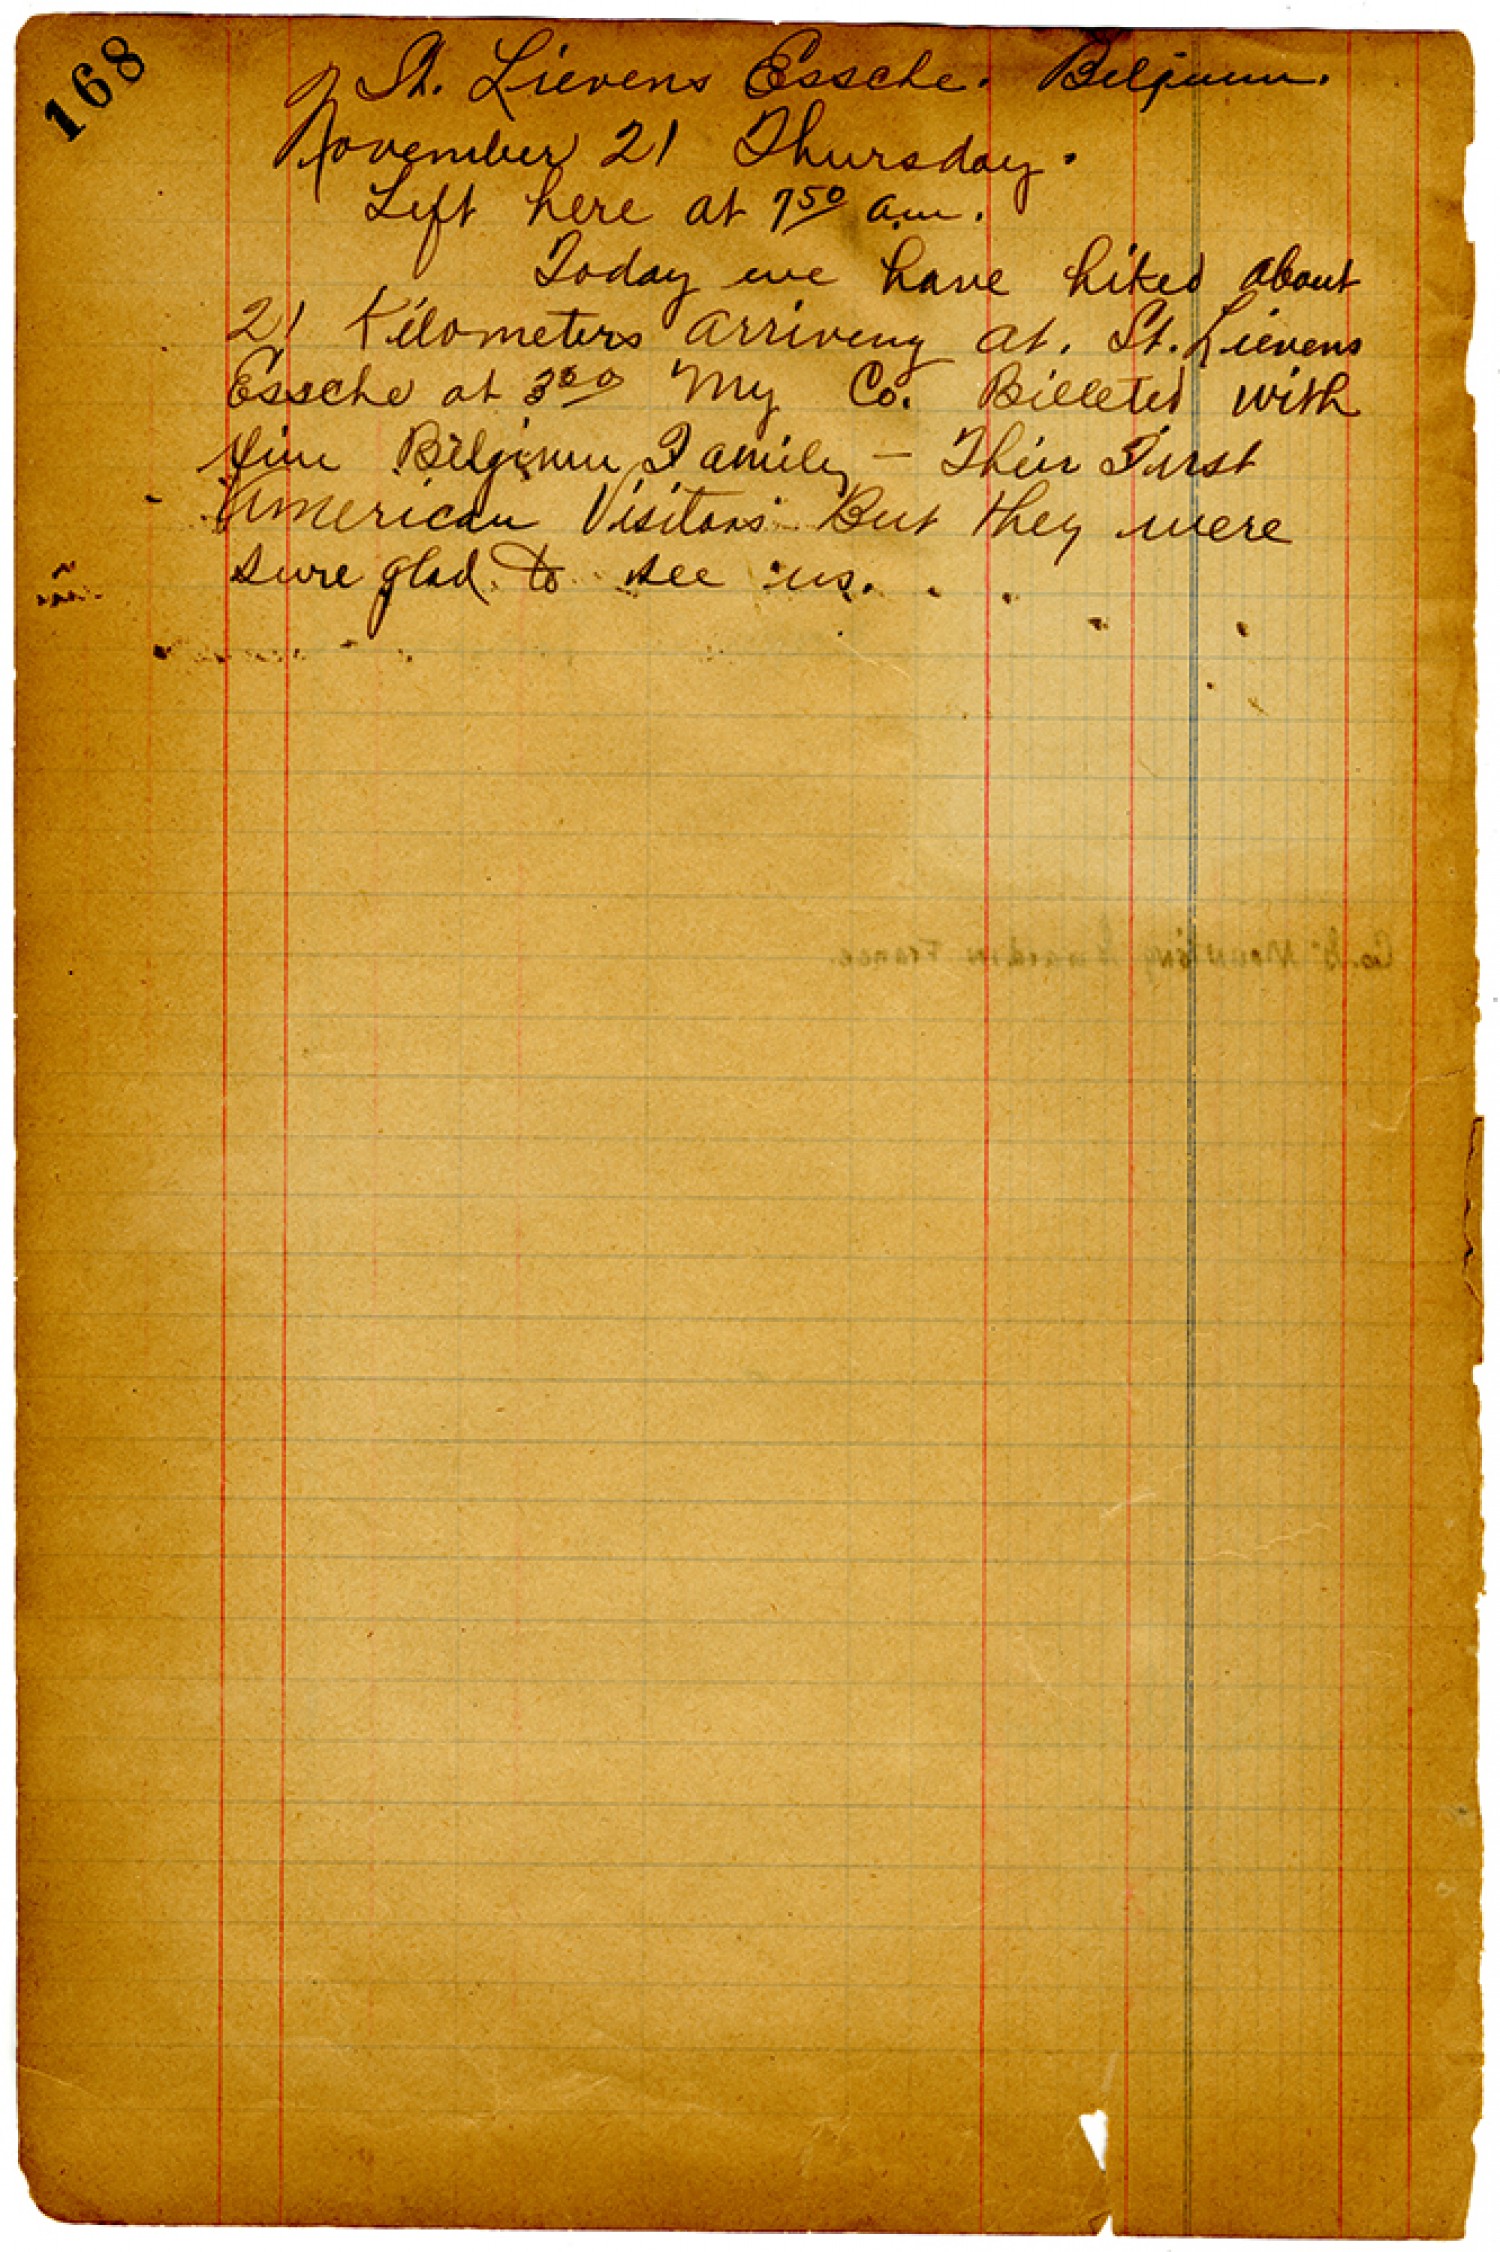 168
St. Lievens Essche. Belgium.
November 21 Thursday.
Left here at 7 50 a.m.
Today we have hiked about
21 Kilometers arriving at. St. Lievens
Essche at 3 30 My Co. Billeted with
fine Belgium Family – Their First
American Visitors But they were
sure glad to see us.
Co. B. Mounting Guard in France.